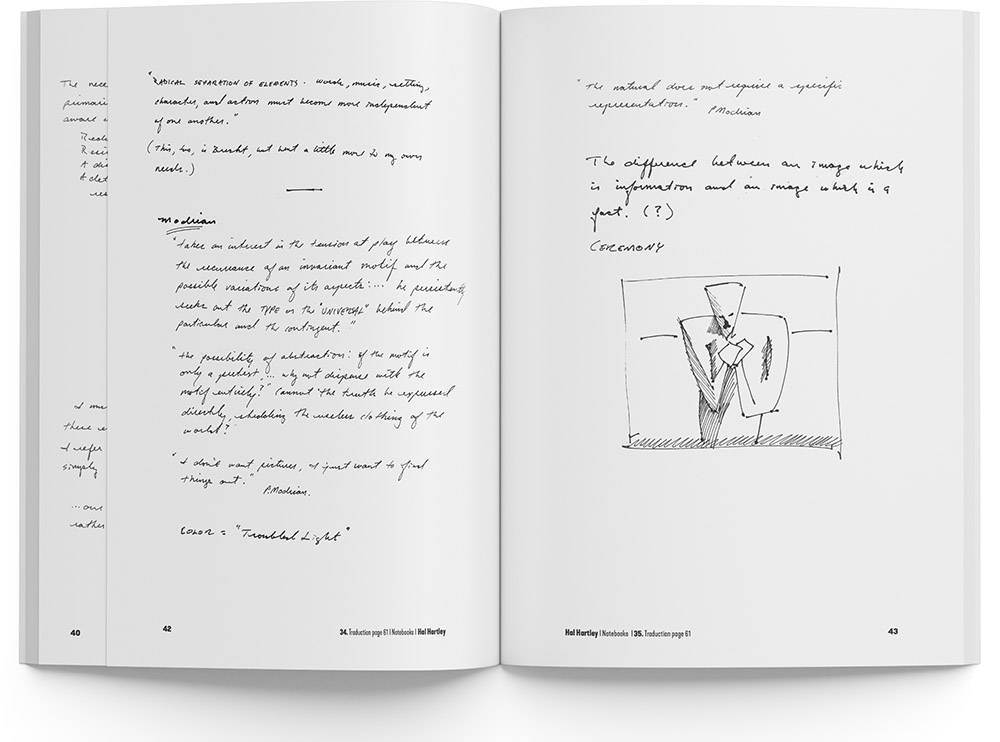 The nece
primari
aware o
A dis
A det
I mus
these
I refer
simply
...our
rather
40
"RADICAL SEPARATION OF ELEMENTS - words, music, setting,
character, and action must become more independent
of one another."
(This, too, is Brecht, but bent a little more to my own
needs.)
Modrian
"takes an interest in the tension at play between
the recurrence of an invariant motif and the
possible variations of its aspects:... he persistently
seeks out the TYPE or the "UNIVERSAL" behind the
particular and the contingent."
"the possibility of abstraction: if the motif is
only a pretext, ... why not dispense with the
motif entirely?" Cannot the truth be expressed
directly, shedding the useless clothing of the
world?
"I don't want pictures, I just want to find
things out."
P. Modrian.
COLOR = "Troubled Light"
42
34. Traduction page 61 | Notebooks | Hal Hartley
"The natural does not require a specific
representation."
P. Modrian
The difference between an image which
is information and an image which is a
fact. (?)
CEREMONY
Hal Hartley | Notebooks | 35. Traduction page 61
43